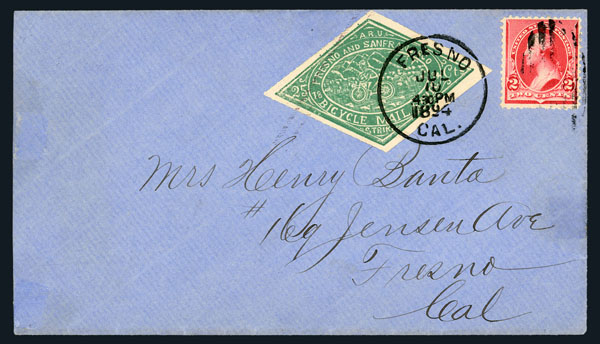 A.R.U.
FRESNO AND SAN FRAN
BICYCLE MAIL
25
STRIK
FRESNO
JUL
10
430PM
1894
CAL.
2 2
TWO CENTS
Mrs Henry Banta
#169 Jensen Ave
Fresno
Cal